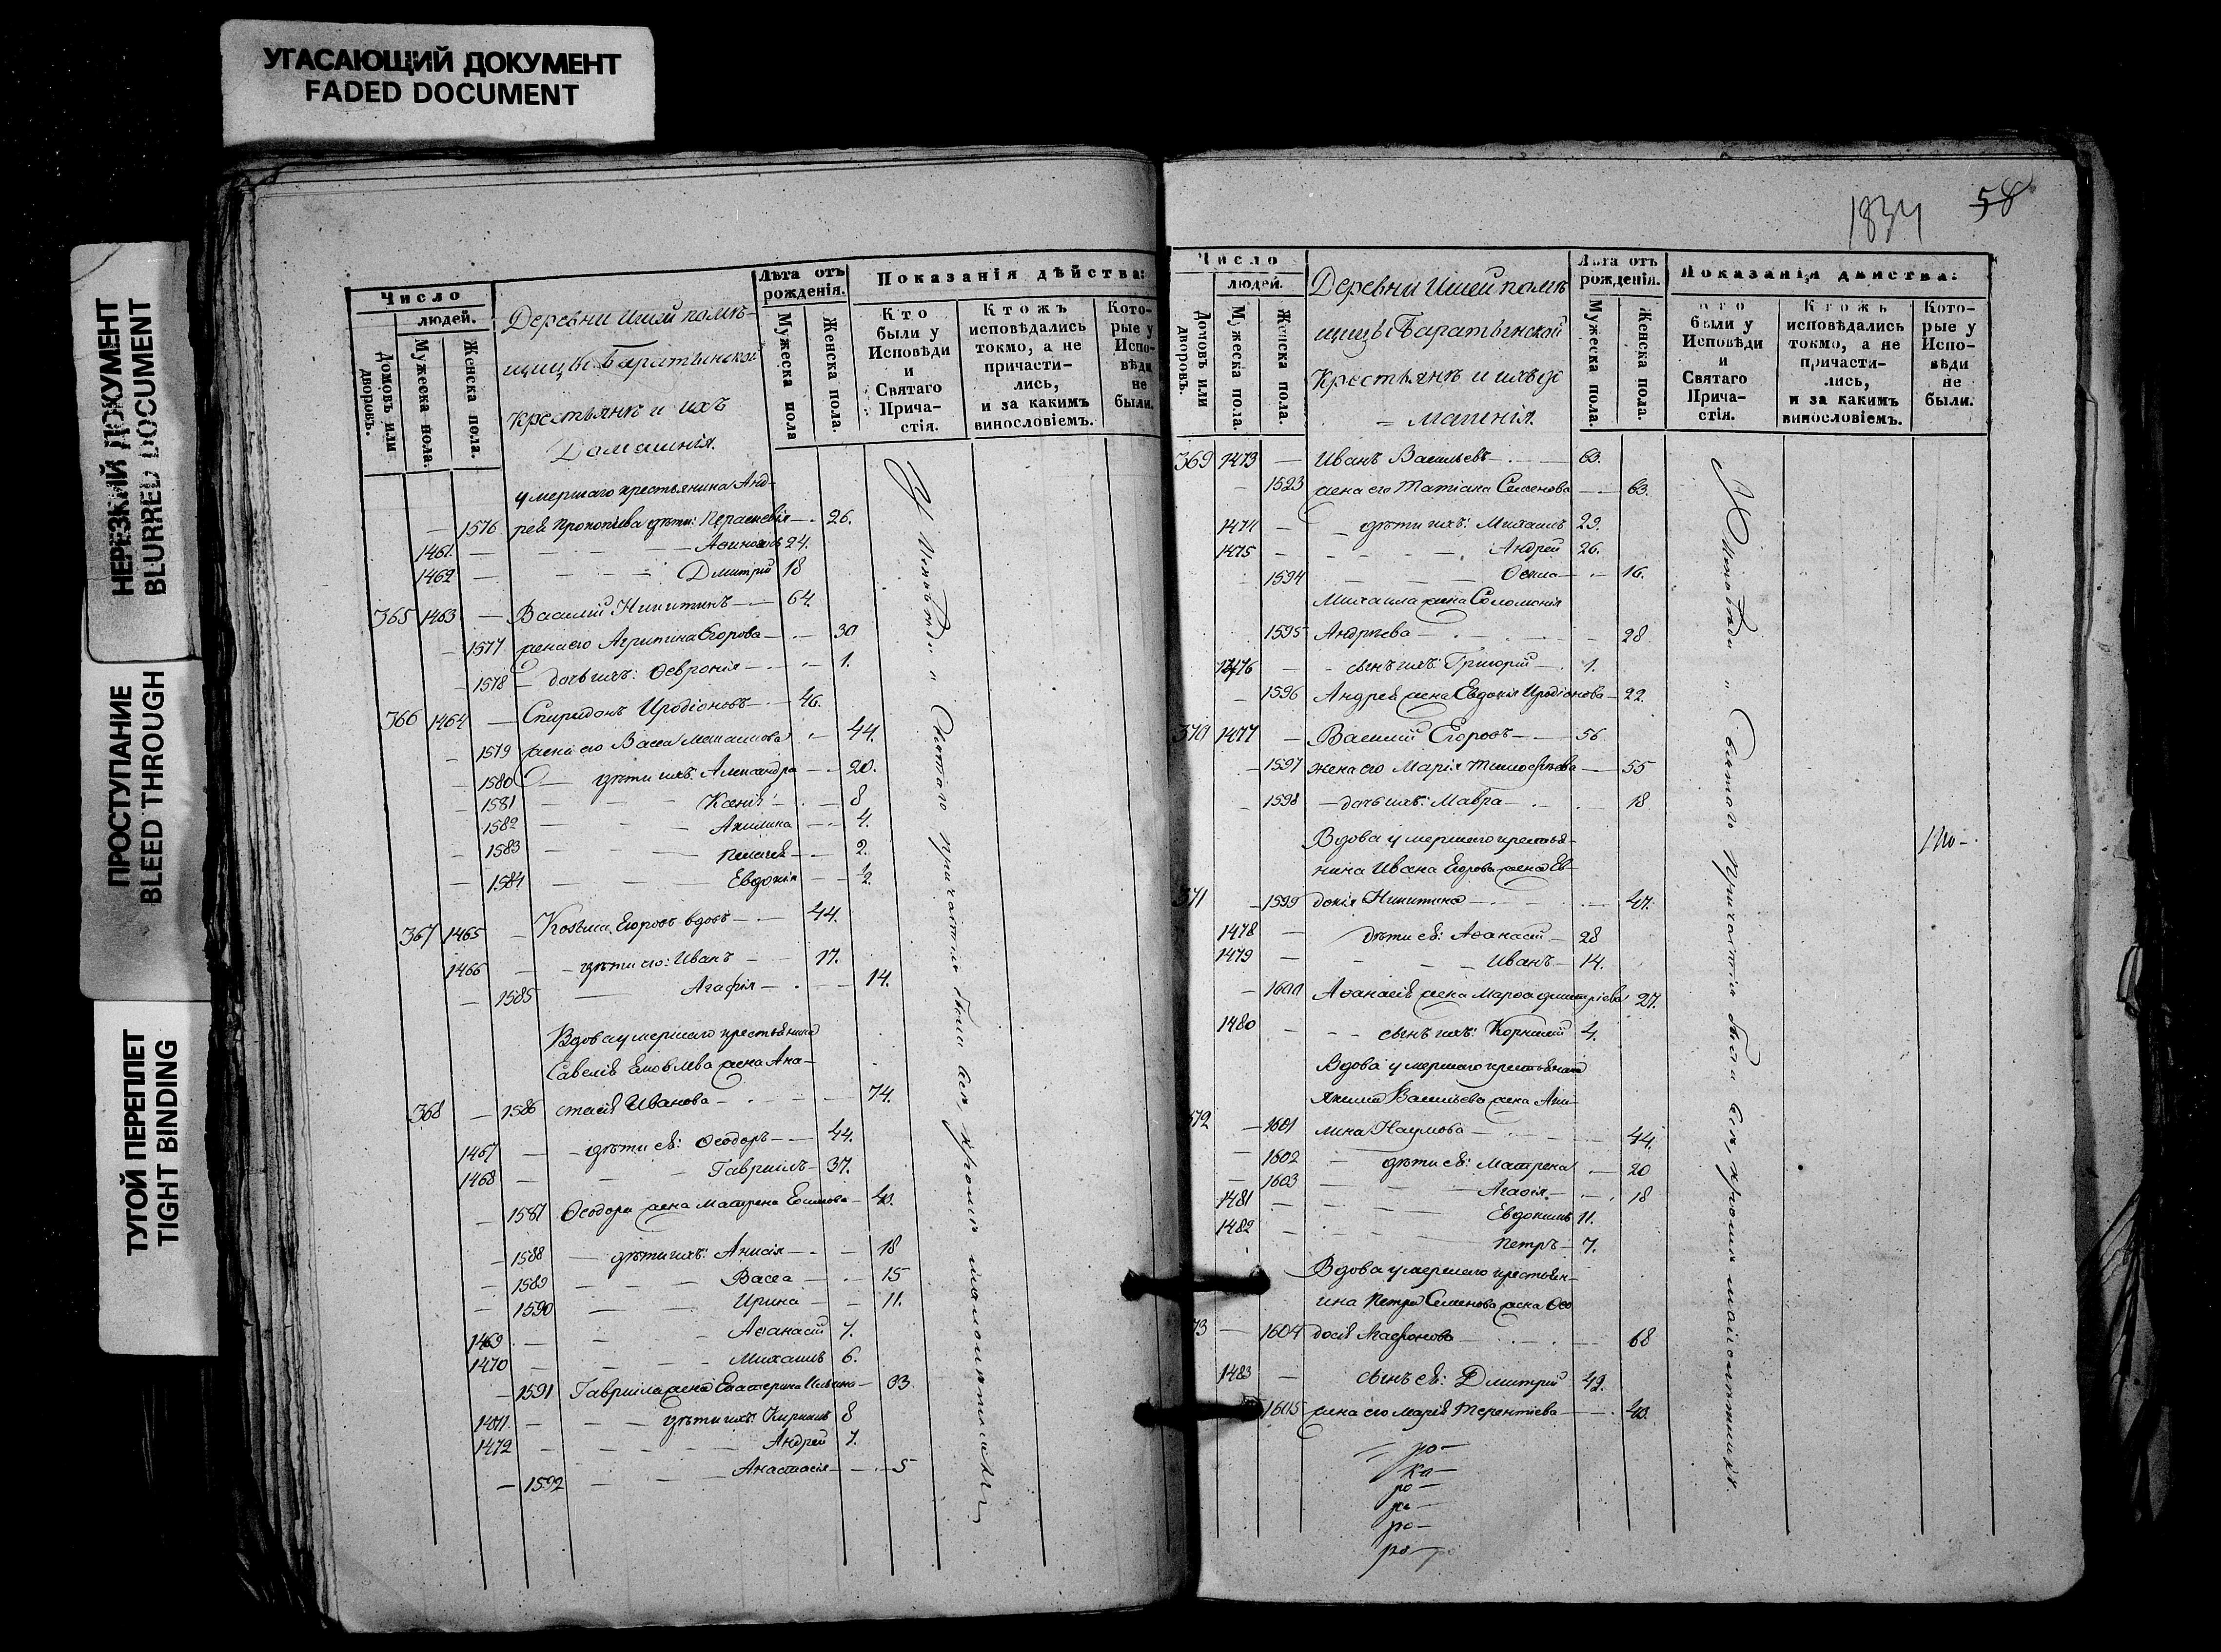 УГАСАЮЩИЙ ДОКУМЕНТ
FADED DOCUMENT
НЕРЕЗКИЙ ДОКУМЕНТ
BLURRED DOCUMENT
ПРОСТУПАНИЕ
BLEED THROUGH
ТУГОЙ ПЕРЕПЛЕТ
TIGHT BINDING
Число
людей.
Домовъ или дворовъ.
Мужеска пола.
Женска пола.
Деревни помѣ-
щицы Баратынской
крестьянѣ и ихъ
Домашнія.
Лѣта отъ рожденія.
Мужеска пола
Женска пола.
Показанія дѣйства:
Кто были у Исповѣди и Святаго Прича-стія.
Ктожъ исповѣдались токмо, а не причасти-лись, и за какимъ винословіемъ.
Кото-рые у Испо-вѣди не были.
умершаго крестьянина Анд-
— 1576 рея Прокопіева дѣти: Параскевія — 26.
1461. — 24.
1462 — Дмитрій 18
365 1463 — Василій Никитинъ — 64.
— 1577 жена его Агрипина Егорова — 30
— 1578 — дочь ихъ: Ѳевронія — 1.
366 1464 — Спиридонъ Иродіоновъ — 46.
— 1579 жена его Васса — 44.
— 1580 — дѣти ихъ: Александра — 20.
— 1581 — Ксенія — 8
1582 — Акилина — 4.
— 1583 — Пелагея — 2.
— 1584 — Евдокія — ½.
367 1465 — Козьма Егоровъ вдовъ — 44.
1466 — дѣти его: Иванъ — 17.
— 1585 — Агафія — 14.
Вдова умершаго крестьянина
Савелія Яковлева жена Ана-
368 — 1586 стасія Иванова — 74.
1467 — дѣти ея: Ѳеодоръ — 44.
1468 — Гавріилъ — 37.
— 1587 Ѳеодора жена Матрена — 40.
— 1588 — дѣти ихъ: Анисія — 18
— 1589 — Васса — 15
— 1590 — Ирина — 11.
1469 — Аѳанасій 7.
1470 — Михаилъ 6.
— 1591 Гавріила жена Екатерина — 33.
1471 — дѣти ихъ: Кириллъ 8
1472 — Андрей 7.
— 1592 — Анастасія — 5
У Исповѣди и Святаго причастія были всѣ, кромѣ малолѣтныхъ
1834 58
Число
людей.
Домовъ или дворовъ.
Мужеска пола.
Женска пола.
Деревни помѣ
щицы Баратынской
Крестьянѣ и ихъ до
— машнія.
Лѣта отъ рожденія.
Мужеска пола.
Женска пола.
Показанія дѣйства:
Кто были у Исповѣди и Святаго Прича-стія.
Ктожъ исповѣдались токмо, а не причасти-лись, и за какимъ винословіемъ.
Кото-рые у Испо-вѣди не были.
369 1473 — Иванъ Васильевъ — 63.
— 1523 жена его Татіана Семенова — 63.
1474 — дѣти ихъ: Михаилъ 29.
1475 — Андрей 26.
1594 — Ѳекла — 16.
Михаила жена Соломонія
1595 Андреева — 28
1476 — сынъ ихъ: Григорій — 1.
— 1596 Андрея жена Евдокія Иродіонова — 22.
370 1477 — Василій Егоровъ — 56
— 1597 жена его Марія Тимоѳеева — 55
— 1598 — дочь ихъ: Мавра — 18
Вдова умершаго крестья-
нина Ивана Егорова жена Ев-
371 — 1599 докія Никитина — 47.
1478 — дѣти ея: Аѳанасій — 28
1479 — Иванъ — 14.
— 1600 Аѳанасія жена Марѳа Дмитріева 27.
1480 — сынъ ихъ: Корнилій 4.
Вдова умершаго крестьянина
Васильева жена Аки-
372 — 1601 лина Наумова — 44.
— 1602 — дѣти ея: Матрена — 20
— 1603 — Агаѳія — 18
1481 — Евдокимъ 11.
1482 — Петръ — 7.
Вдова умершаго крестьян-
ина Петра Семенова жена Ѳео
73 — 1604 досія — 68
1483 — сынъ ея: Дмитрій 42.
1605 жена его Марія Терентіева — 40.
У Исповѣди и Святаго Причастія были всѣ, кромѣ малолѣтныхъ.